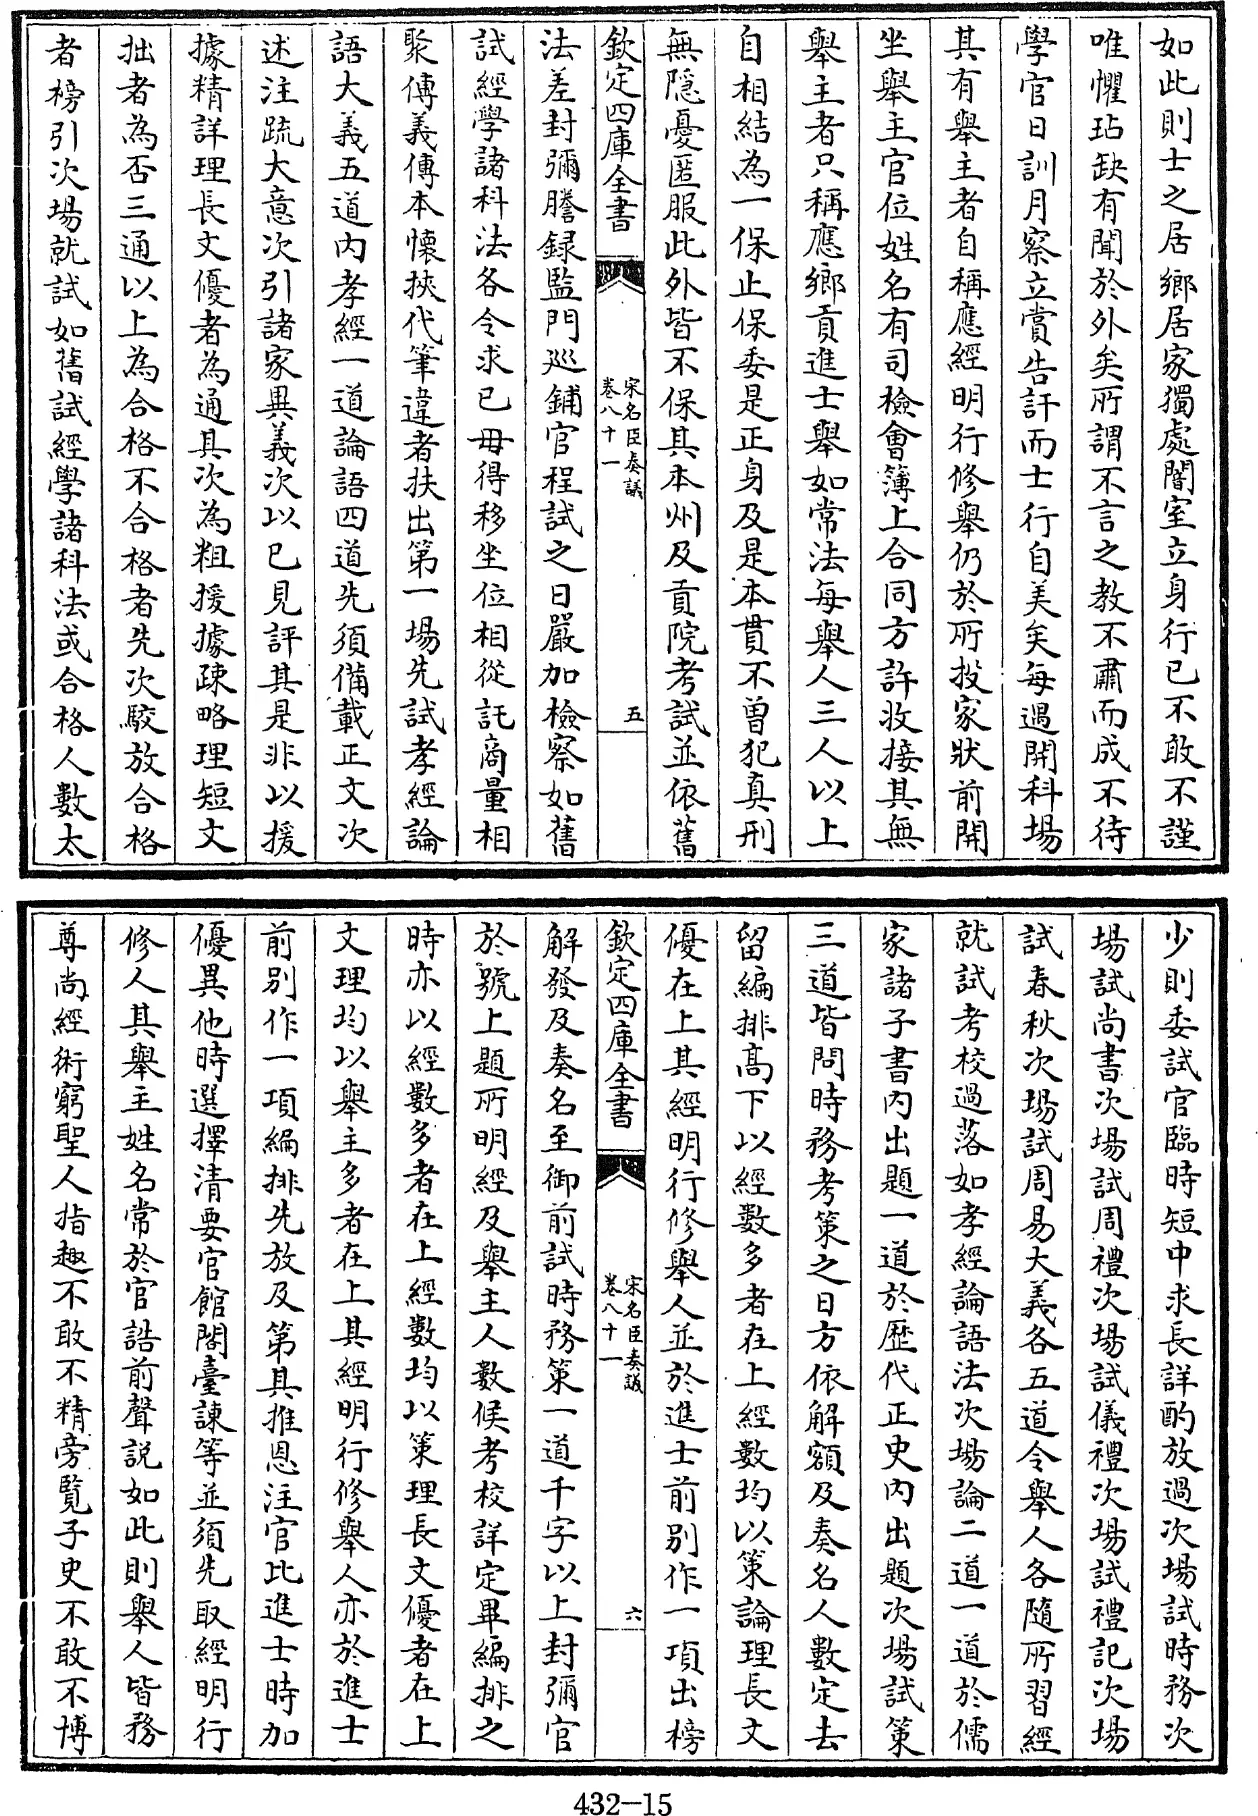 如此則士之居鄉居家獨處闇室立身行已不敢不謹
唯懼玷缺有聞於外矣所謂不言之教不肅而成不待
學官日訓月察立賞告訐而士行自美矣每遇開科場
其有舉主者自稱應經明行修舉仍於所投家狀前開
坐舉主官位姓名有司檢會簿上合同方許收接其無
舉主者只稱應鄉貢進士舉如常法每舉人三人以上
自相結為一保止保委是正身及是本貫不曾犯真刑
無隱憂匿服此外皆不保其本州及貢院考試並依舊
欽定四庫全書
宋名臣奏議
卷八十一
五
法差封彌謄録監門巡鋪官程試之日嚴加檢察如舊
試經學諸科法各令求已毋得移坐位相從託商量相
聚傳義傳本懷挾代筆違者扶出第一場先試孝經論
語大義五道內孝經一道論語四道先須備載正文次
述注疏大意次引諸家異義次以已見評其是非以援
據精詳理長文優者為通其次為粗援據疎略理短文
拙者為否三通以上為合格不合格者先次駮放合格
者榜引次場就試如舊試經學諸科法或合格人數太
少則委試官臨時短中求長詳酌放過次場試時務次
場試尚書次場試周禮次場試儀禮次場試禮記次場
試春秋次場試周易大義各五道令舉人各隨所習經
就試考校過落如孝經論語法次場論二道一道於儒
家諸子書內出題一道於歷代正史內出題次場試策
三道皆問時務考策之日方依解額及奏名人數定去
留編排高下以經數多者在上經數均以策論理長文
優在上其經明行修舉人並於進士前別作一項出榜
欽定四庫全書
宋名臣奏議
卷八十一
六
解發及奏名至御前試時務策一道千字以上封彌官
於號上題所明經及舉主人數候考校詳定畢編排之
時亦以經數多者在上經數均以策理長文優者在上
文理均以舉主多者在上其經明行修舉人亦於進士
前別作一項編排先放及第其推恩注官比進士時加
優異他時選擇清要官館閣臺諫等並須先取經明行
修人其舉主姓名常於官誥前聲説如此則舉人皆務
尊尚經術窮聖人指趣不敢不精旁覽子史不敢不博
432-15